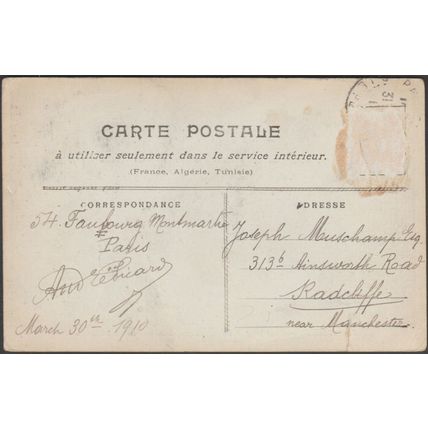 CARTE POSTALE
à utiliser seulement dans le service intérieur.
(France, Algérie, Tunisie)
CORRESPONDANCE
54 Faubourg Montmartre
Paris
March 30th 1910
ADRESSE
Joseph Muschamp Esq
313b Ainsworth Road
Radcliffe
near Manchester